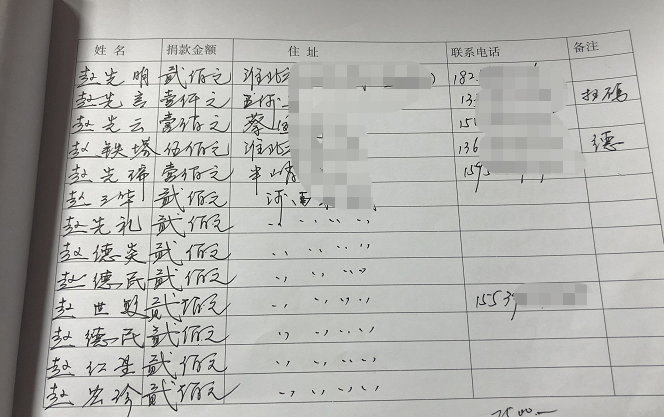 姓名 捐款金额 住址 联系电话 备注
赵先明 贰佰元 淮北 182
赵先言 壹仟元 13 扫码
赵先云 壹佰元 蔡 15
赵铁塔 伍佰元 淮北 136 德
赵先 壹佰元 159
赵 华 贰佰元
赵先礼 贰佰元 〃 〃 〃 〃 〃
赵德炎 贰佰元 〃 〃 〃 〃
赵德民 贰佰元 〃 〃 〃 〃
赵世 贰佰元 〃 〃 〃 〃 1553
赵德民 贰佰元 〃 〃 〃 〃
赵红星 贰佰元 〃 〃 〃 〃
赵宏珍 贰佰元 〃 〃 〃 〃